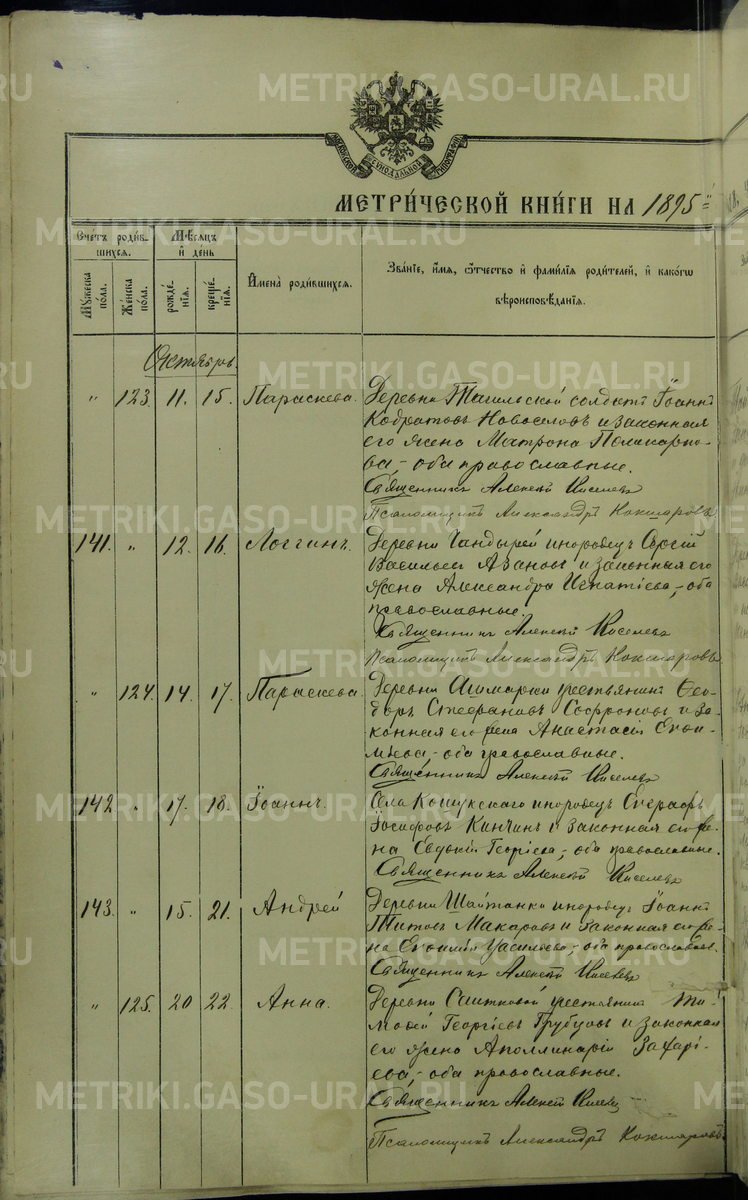 МОСКОВСКОЙ СѴНОДАЛЬНОЙ ТИПОГРАФІИ
МЕТРИ́ЧЕСКОЙ КНИ́ГИ НА 1895
Счетъ роди́вшихся.
Мѣсяцъ и де́нь
Имена̀ роди́вшихся.
Зва́нїе, и́мя, ѻ́тчество и фами́лїя роди́телей, и како́гѡ вѣроисповѣ́данїя.
Мꙋ́жеска по́ла.
Же́нска по́ла.
рожде́нїя.
креще́нїя.
Октябрь.
" 123. 11. 15. Параскева.
Деревни Тагильской солдатъ Іоаннъ
Новоселовъ и законная
его жена Матрона Поликарпо-
ва,- оба православные.
Священникъ Алексѣй Киселевъ
Псаломщикъ Александръ Кокшаровъ
141. " 12. 16. Логгинъ.
Деревни Чандырей инородецъ Сергій
Васильевъ Азановъ и законная его
жена Александра Игнатіева,- оба
православные.
Священникъ Алексѣй Киселевъ
Псаломщикъ Александръ Кокшаровъ
" 124. 14. 17. Параскева.
Деревни крестьянинъ Ѳео-
доръ Стефановъ Софроновъ и за-
конная его жена Анастасія Евѳи-
міева - оба православные.
Священникъ Алексѣй Киселевъ
142. " 17. 18. Іоаннъ.
Села Кошукскаго инородецъ
Іосифовъ Кинчинъ и законная его же-
на Евдокія Георгіева,- оба православные.
Священникъ Алексѣй Киселевъ
143. " 15. 21. Андрей
Деревни Шайтанки инородецъ Іоаннъ
Титовъ Макаровъ и законная его же-
на Евѳимія Васильева,- оба православные.
Священникъ Алексѣй Киселевъ
" 125. 20 22. Анна.
Деревни крестьянинъ Ти-
моѳей Георгіевъ и законная
его жена Аполлинарія Захарі-
ева,- оба православные.
Священникъ Алексѣй Киселевъ
Псаломщикъ Александръ Кокшаровъ
METRIKI.GASO-URAL.RU